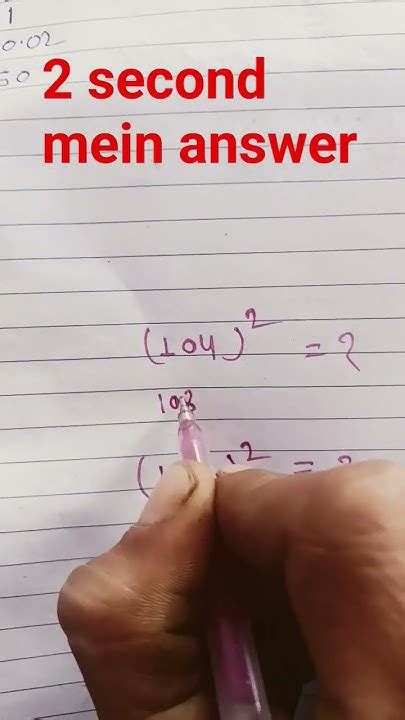 1
0.02
50
2 second
mein answer
(104)² = ?
108
( )² = ?